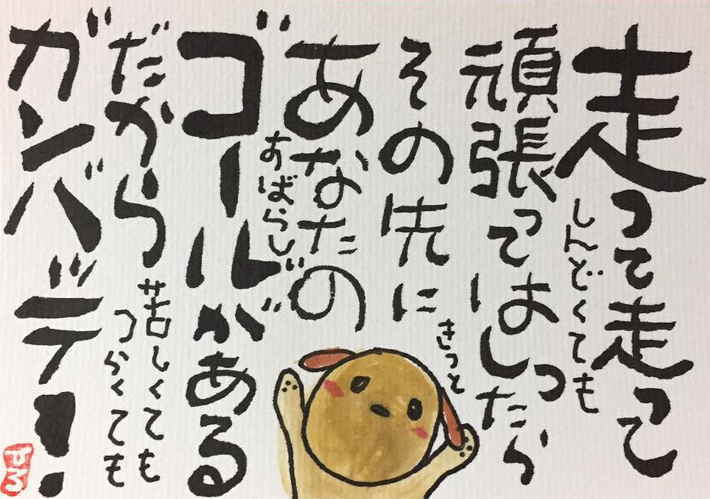 走って走って
しんどくても
頑張ってはしったら
その先に
きっと
あなたの
すばらしい
ゴールがある
だから
苦しくても
つらくても
ガンバッテ！
ひろ